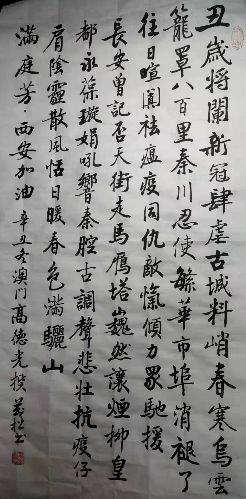 丑歲將闌新冠肆虐古城料峭春寒烏雲
籠罩八百里秦川忍使繁華市埠消褪了
往日喧闐祛瘟疫同仇敵愾傾力眾馳援
長安曾記否天街走馬鴈塔巍然讓煙柳皇
都永葆璇娟吼響秦腔古調聲悲壯抗疫仔
肩陰霾散風恬日暖春色滿驪山
滿庭芳·西安加油 辛丑冬澳門高德光撰 松書